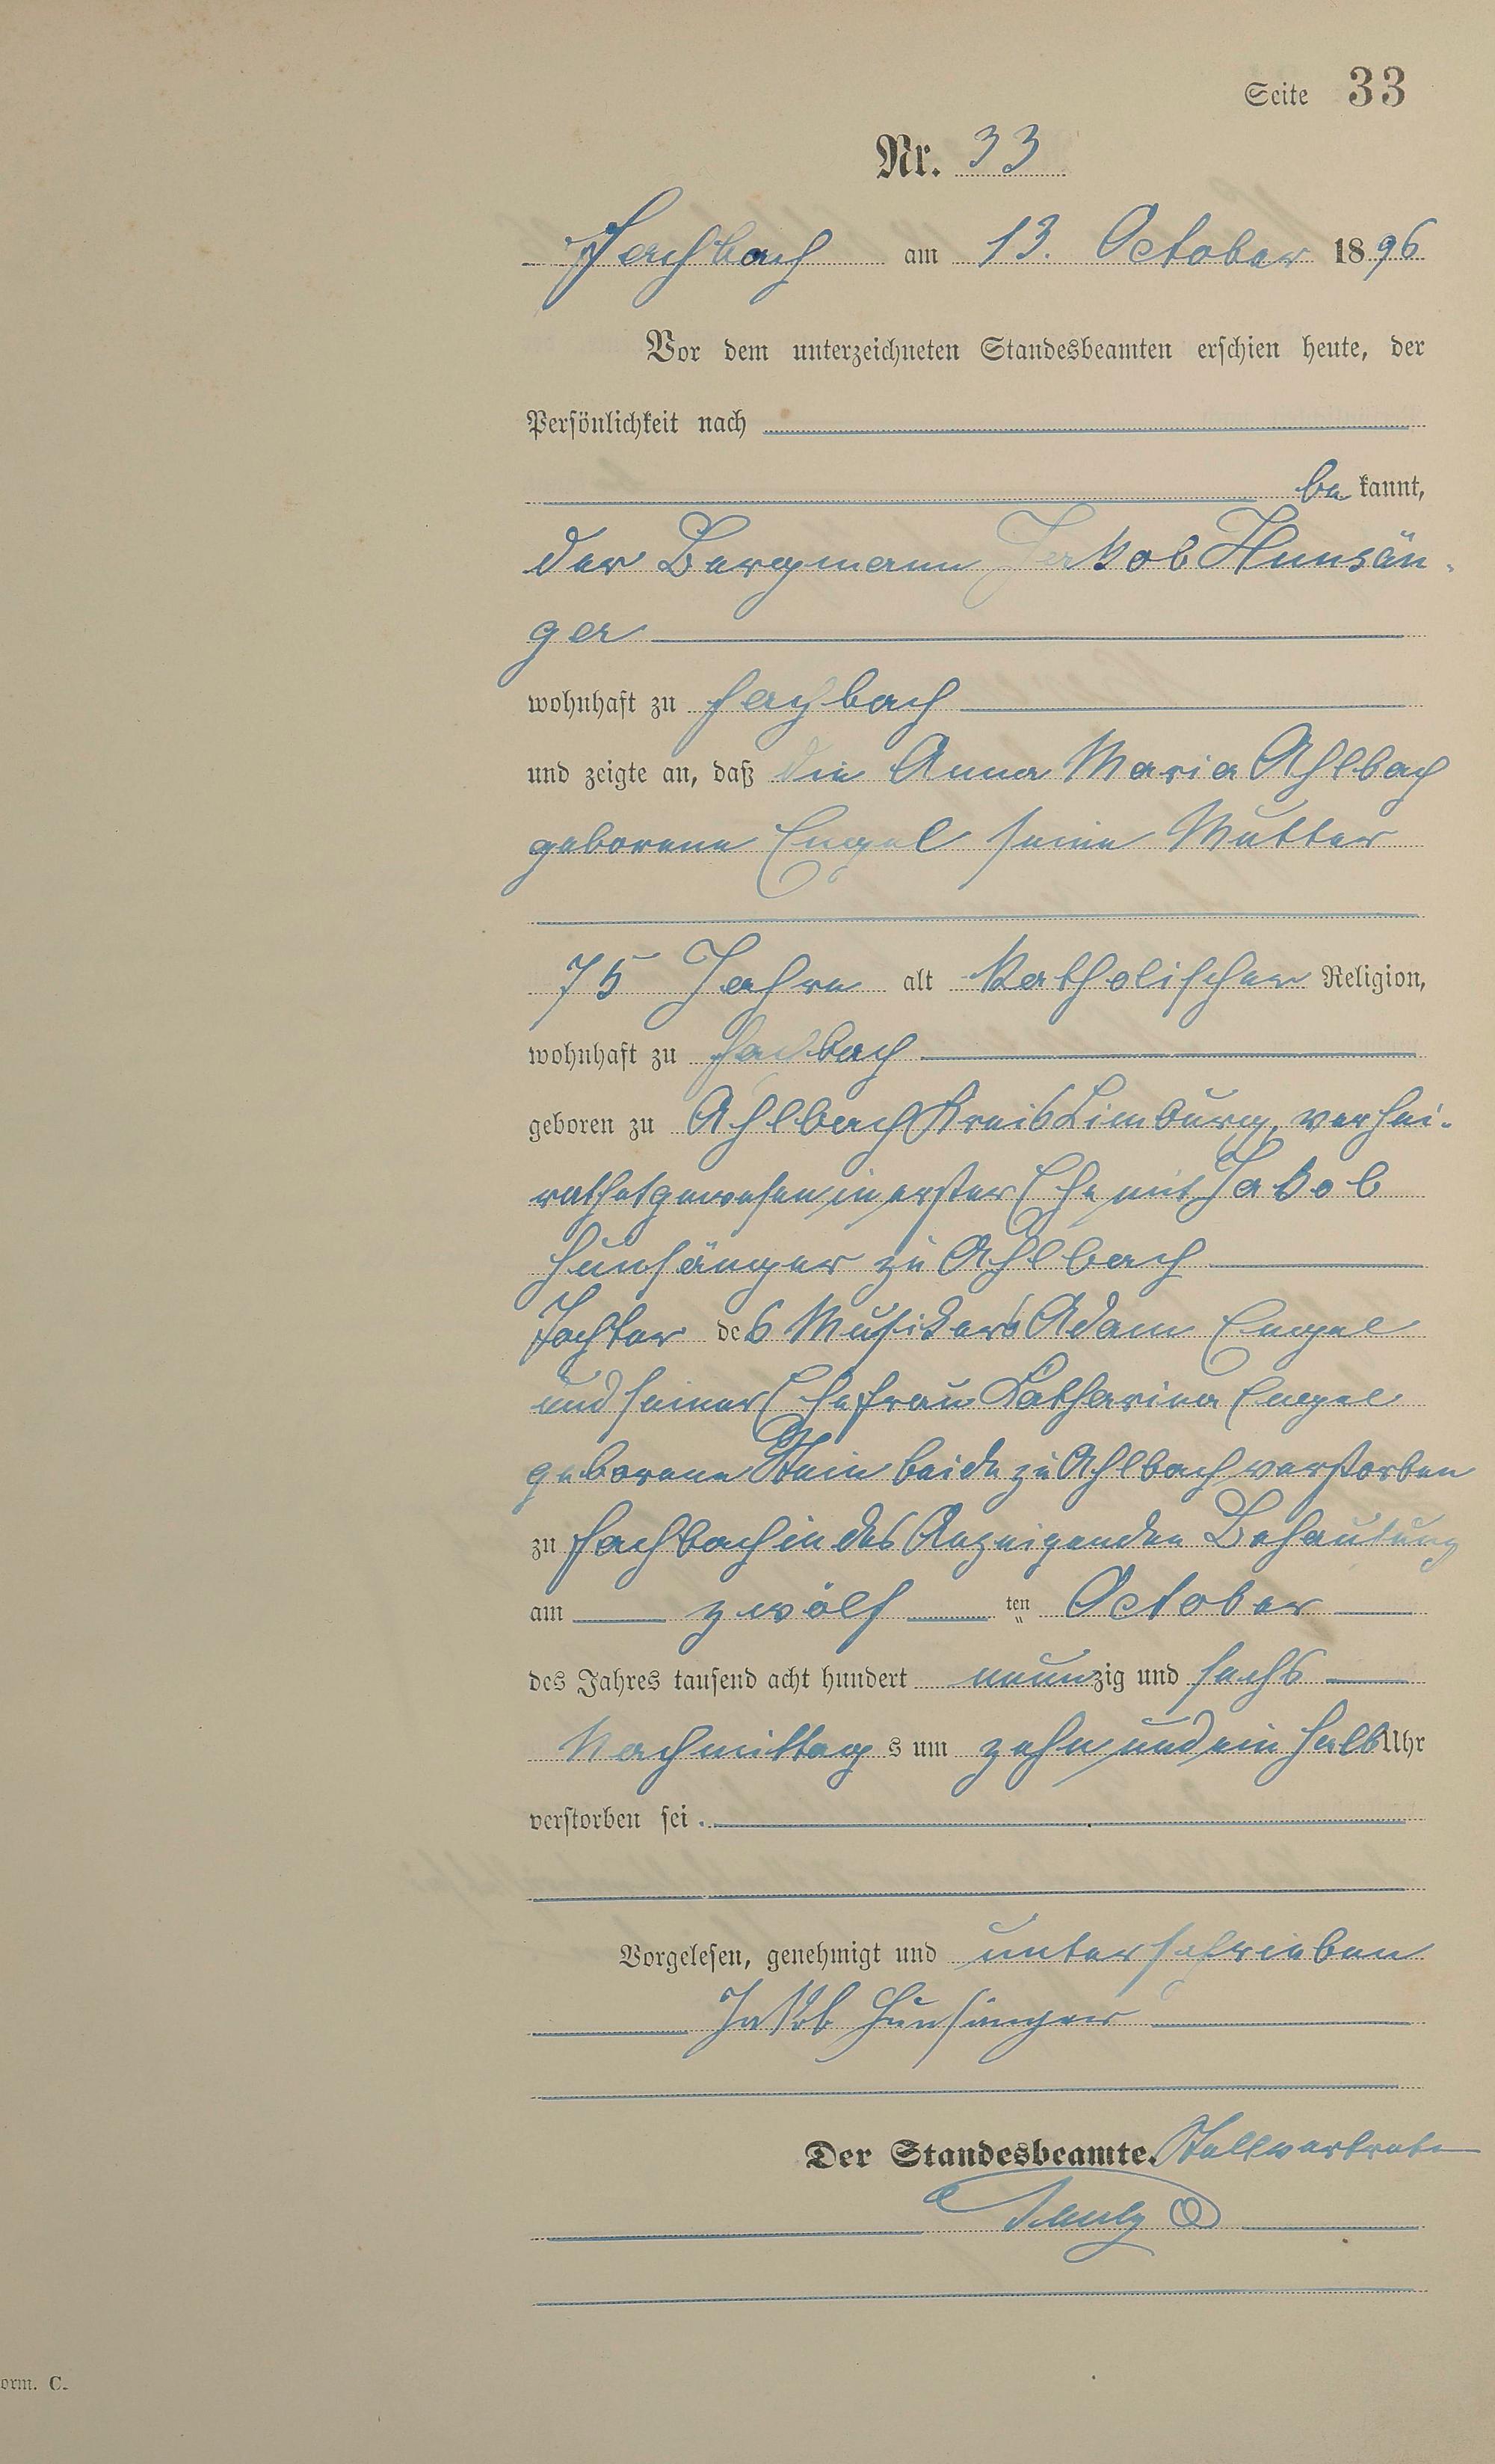 Seite 33
Nr. 33
Fachbach am 13. October 1896
Vor dem unterzeichneten Standesbeamten erschien heute, der
Persönlichkeit nach
bekannt,
der Bergmann Jakob Hunsän-
ger
wohnhaft zu Fachbach
und zeigte an, daß die Anna Maria Ahlbach
geborene Engel seine Mutter
75 Jahre alt katholischer Religion,
wohnhaft zu Fachbach
geboren zu Ahlbach Kreis Limburg, verhei-
rathet gewesen in erster Ehe mit Jakob
Hunsänger zu Ahlbach
Tochter des Musikers Adam Engel
und seiner Ehefrau Katharina Engel
geborene Stein beide zu Ahlbach verstorben
zu Fachbach in des Anzeigenden Behausung
am zwölf ten October
des Jahres tausend acht hundert neunzig und sechs
Nachmittags um zehn und ein halb Uhr
verstorben sei.
Vorgelesen, genehmigt und unterschrieben
Jakob Hunsänger
Der Standesbeamte. Stellvertreter
orm. C.